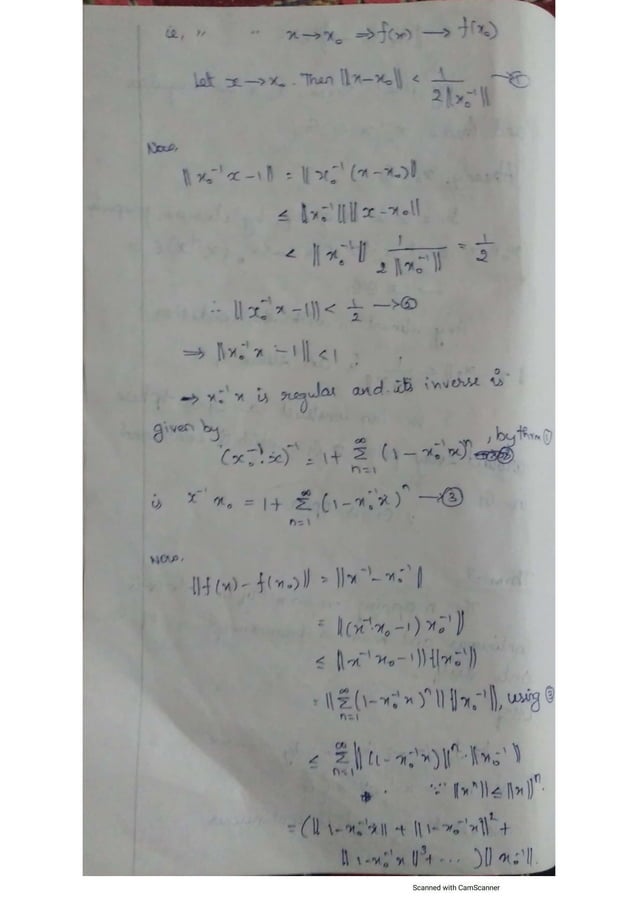 ie, " " x → x₀ ⇒ f(x) → f(x₀)
Let x → x₀. Then ||x-x₀|| < 1/(2||x₀⁻¹||) → ①
Now,
||x₀⁻¹x - 1|| = ||x₀⁻¹(x-x₀)||
≤ ||x₀⁻¹|| ||x-x₀||
< ||x₀⁻¹|| 1/(2||x₀⁻¹||) = 1/2
∴ ||x₀⁻¹x - 1|| < 1/2 → ②
⇒ ||x₀⁻¹x - 1|| < 1.
⇒ x₀⁻¹x is regular and its inverse is
given by
(x₀⁻¹x)⁻¹ = 1 + ∑_{n=1}^{∞} (1 - x₀⁻¹x)ⁿ, by thm ①
is x⁻¹x₀ = 1 + ∑_{n=1}^{∞} (1 - x₀⁻¹x)ⁿ → ③
Now,
||f(x) - f(x₀)|| = ||x⁻¹ - x₀⁻¹||
= ||(x⁻¹x₀ - 1) x₀⁻¹||
≤ ||x⁻¹x₀ - 1|| ||x₀⁻¹||
= ||∑_{n=1}^{∞} (1 - x₀⁻¹x)ⁿ|| ||x₀⁻¹||, using ③
≤ ∑_{n=1}^{∞} ||(1 - x₀⁻¹x)||ⁿ · ||x₀⁻¹||
∵ ||xⁿ|| ≤ ||x||ⁿ.
= (||1 - x₀⁻¹x|| + ||1 - x₀⁻¹x||² +
||1 - x₀⁻¹x||³ + ... ) ||x₀⁻¹||.
Scanned with CamScanner